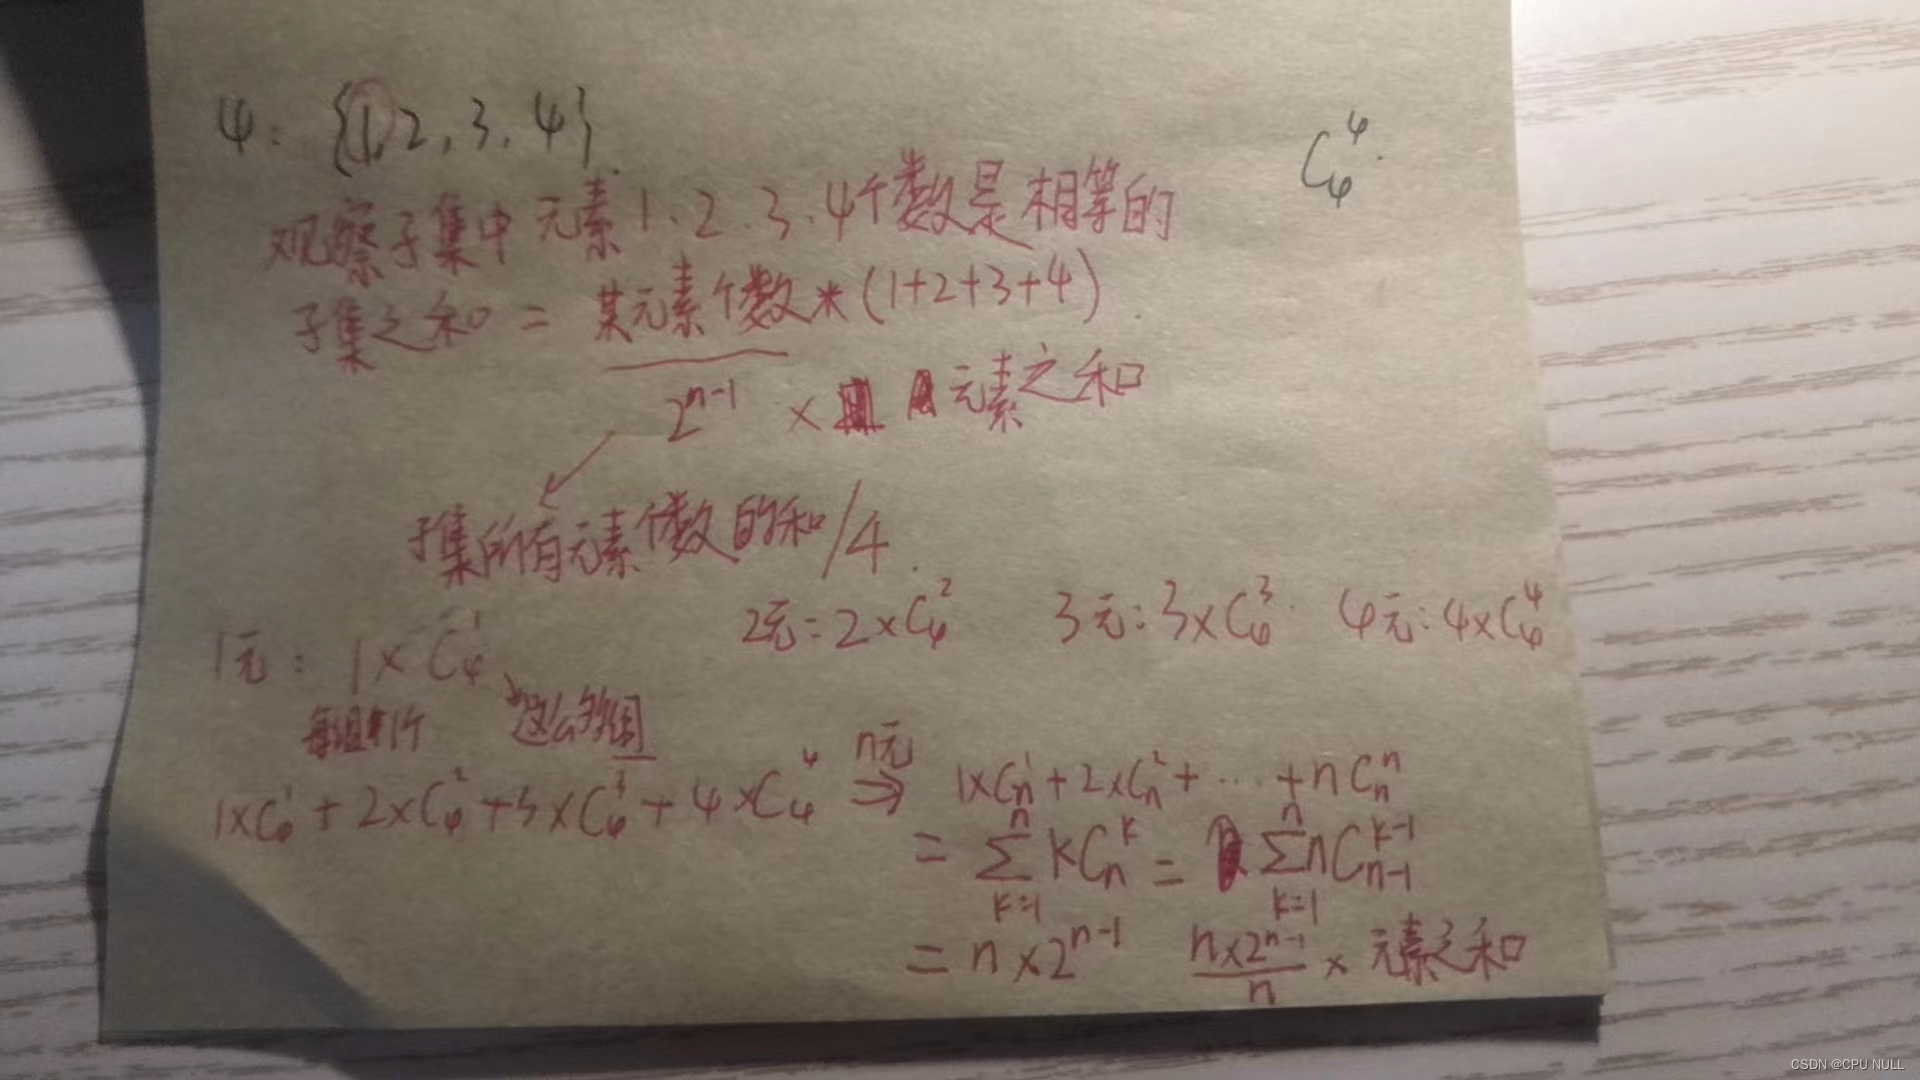 4: {1,2,3,4}
C₄⁴
观察子集中元素1.2.3.4个数是相等的
子集之和 = 某元素个数*(1+2+3+4)
2ⁿ⁻¹ × 元素之和
子集所有元素个数的和/4
1元: 1×C₄¹ 2元:2×C₄² 3元:3×C₄³ 4元:4×C₄⁴
每组1个 这么多组
1×C₄¹+2×C₄²+3×C₄³+4×C₄⁴ n元⇒ 1×Cₙ¹+2×Cₙ²+⋯+nCₙⁿ
= ∑ₖ₌₁ⁿ kCₙᵏ = ∑ₖ₌₁ⁿ nCₙ₋₁ᵏ⁻¹
= n×2ⁿ⁻¹ n×2ⁿ⁻¹/n × 元素之和
CSDN @CPU NULL